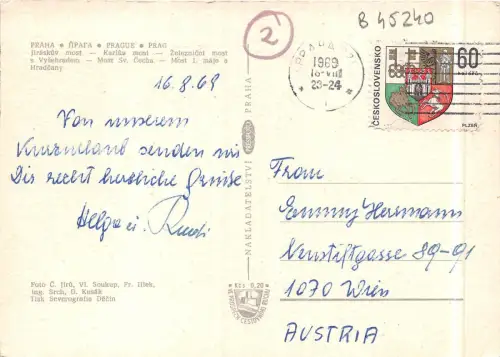 B 45240
2
PRAHA ★ ПРАГА ★ PRAGUE ★ PRAG
Jiráskův most — Karlův most — Železniční most
s Vyšehradem — Most Sv. Čecha — Most 1. máje a
Hradčany
16.8.69
Von unserem
Kurzurlaub senden wir
Dir recht herzliche Grüße
Helga u. Rudi
Foto Č. Jírů, Vl. Soukup, Fr. Jílek,
Ing. Srch, D. Kusák
Tisk Severografie Děčín
NAKLADATELSTVÍ PRESSFOTO PRAHA
Kčs 0,20
PRAHA
1969
18.VIII
23-24
ČESKOSLOVENSKO
60
PLZEŇ
Frau
Emmy Hermann
Neustiftgasse 89-91
1070 Wien
AUSTRIA